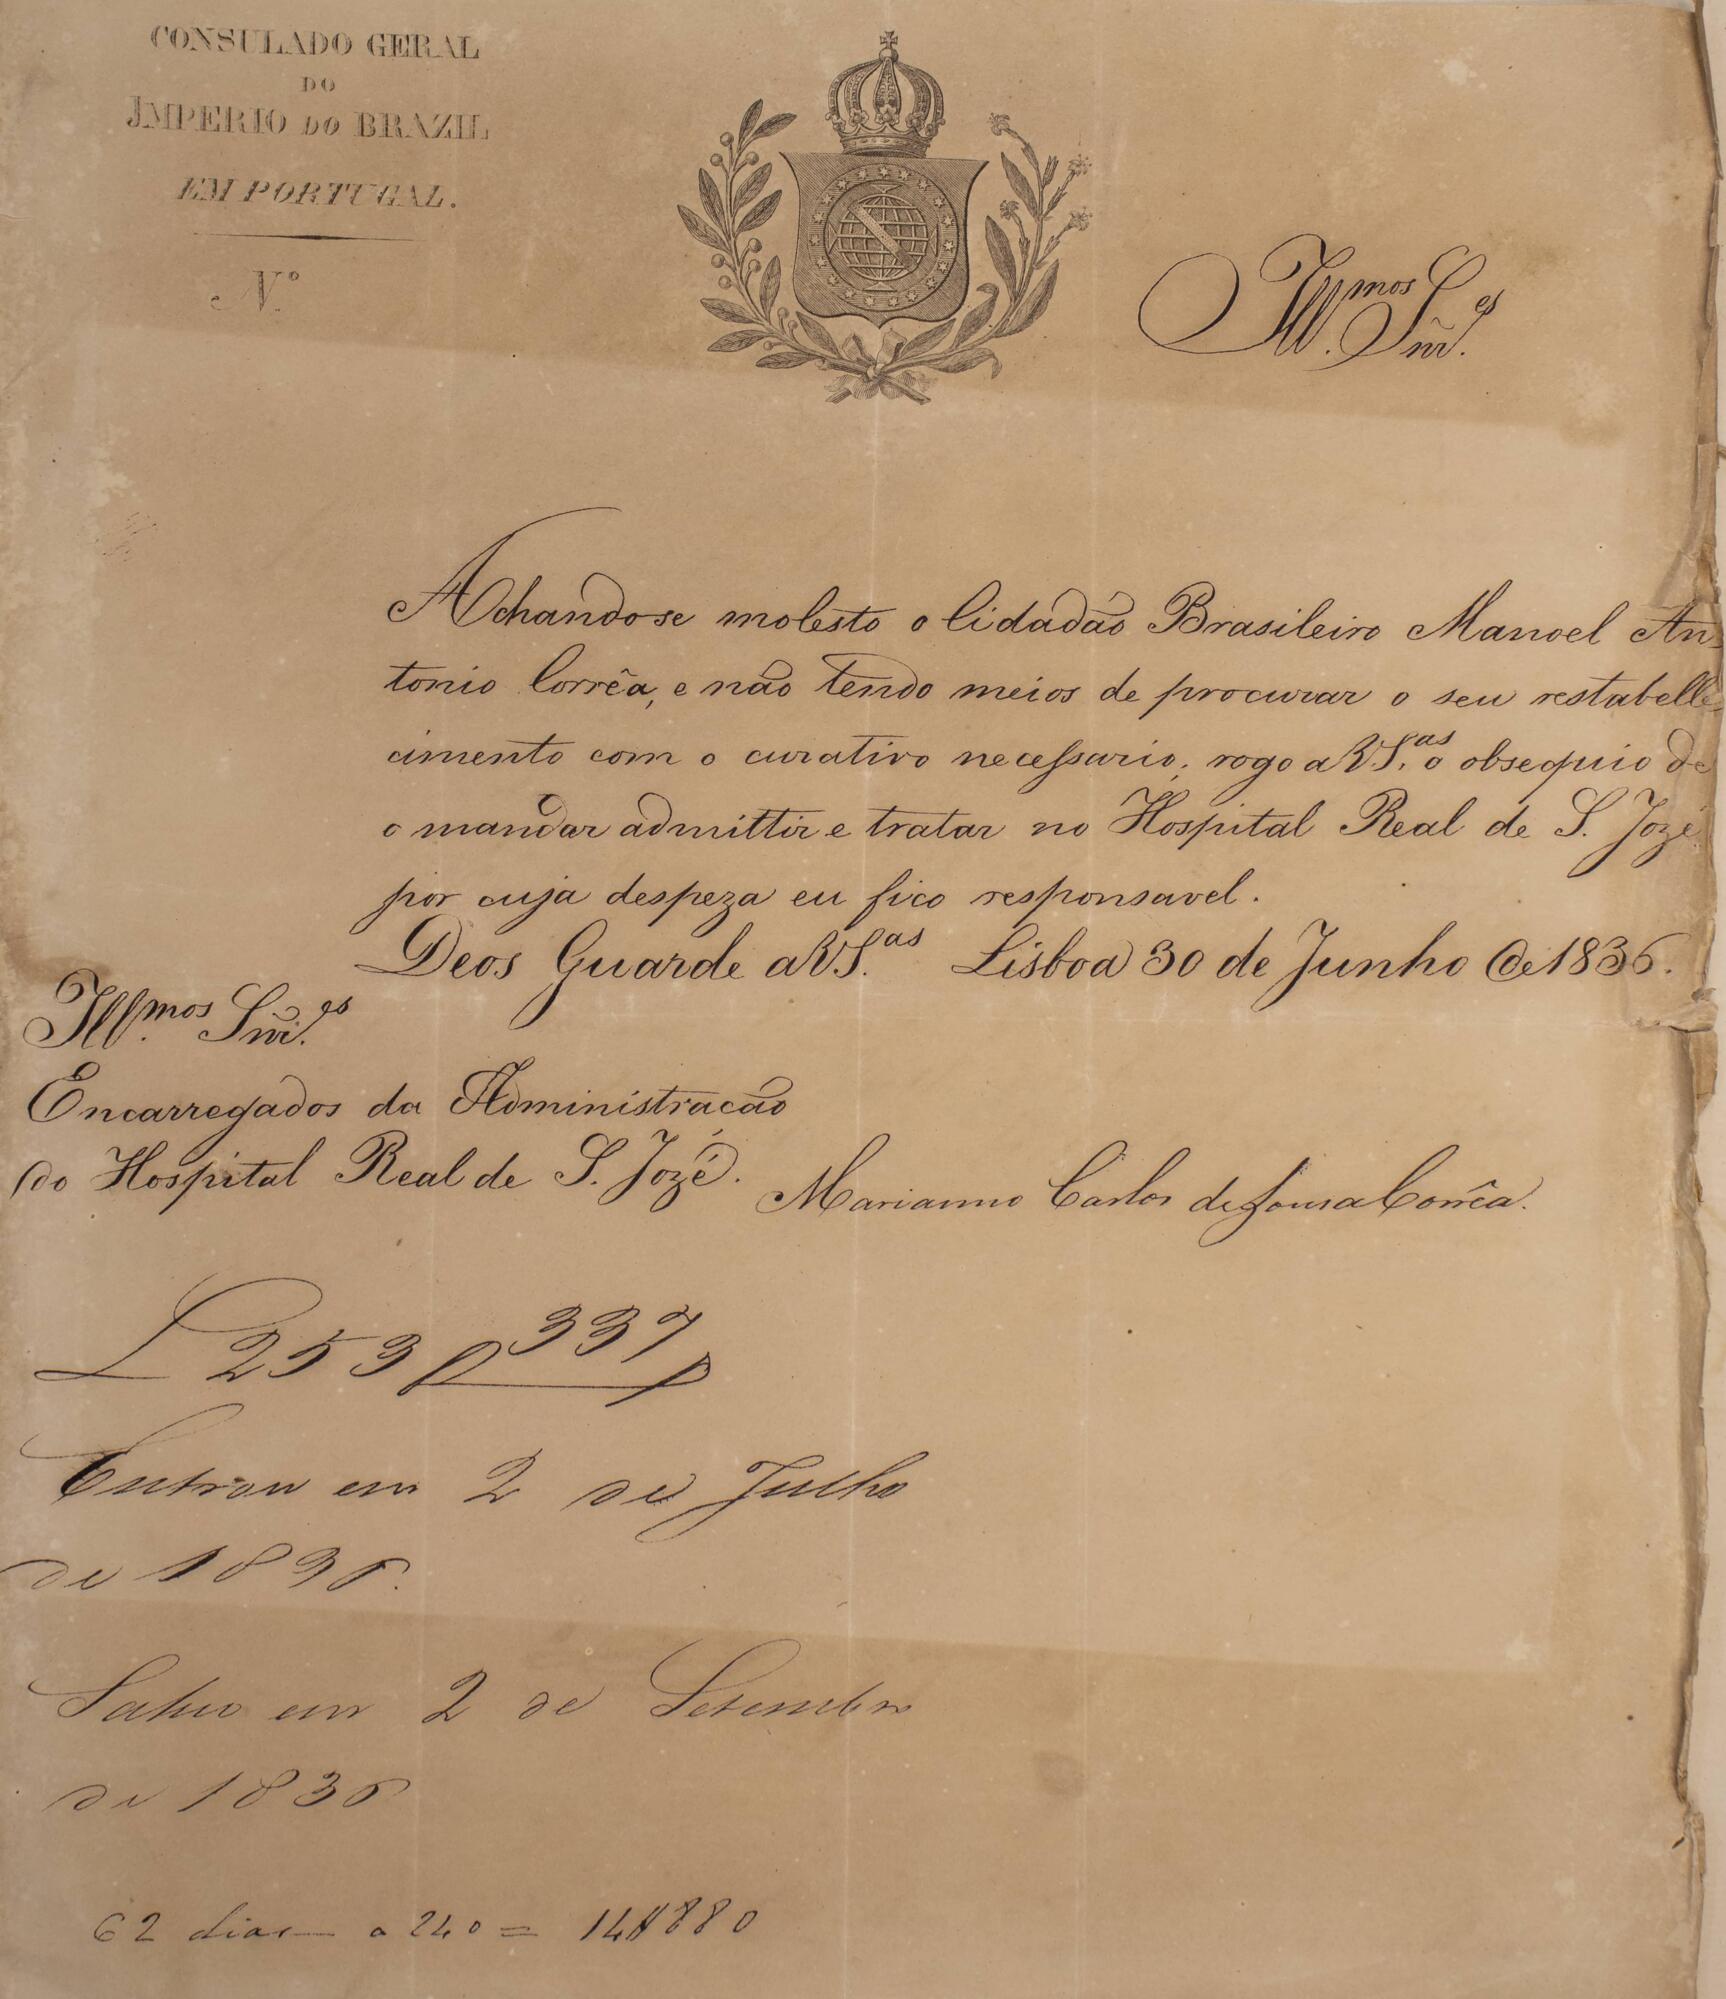 CONSULADO GERAL
DO
IMPERIO DO BRAZIL
EM PORTUGAL.
Nº
Ill.mos Snr.es
Achandose molesto o Cidadão Brasileiro Manoel An-
tonio Corrêa, e não tendo meios de procurar o seu restabelle-
cimento com o curativo necessario; rogo a V.S.as o obsequio de
o mandar admittir e tratar no Hospital Real de S. Jozé
por cuja despeza eu fico responsavel.
Deos Guarde a V.S.as Lisboa 30 de Junho de 1836.
Ill.mos Snr.es
Encarregados da Administração
do Hospital Real de S. Jozé.
Marianno Carlos de Sousa Corrêa.
L 253 f 337
Entrou em 2 de Julho
de 1836.
Sahio em 2 de Setembro
de 1836
62 dias — a 240 = 14$880